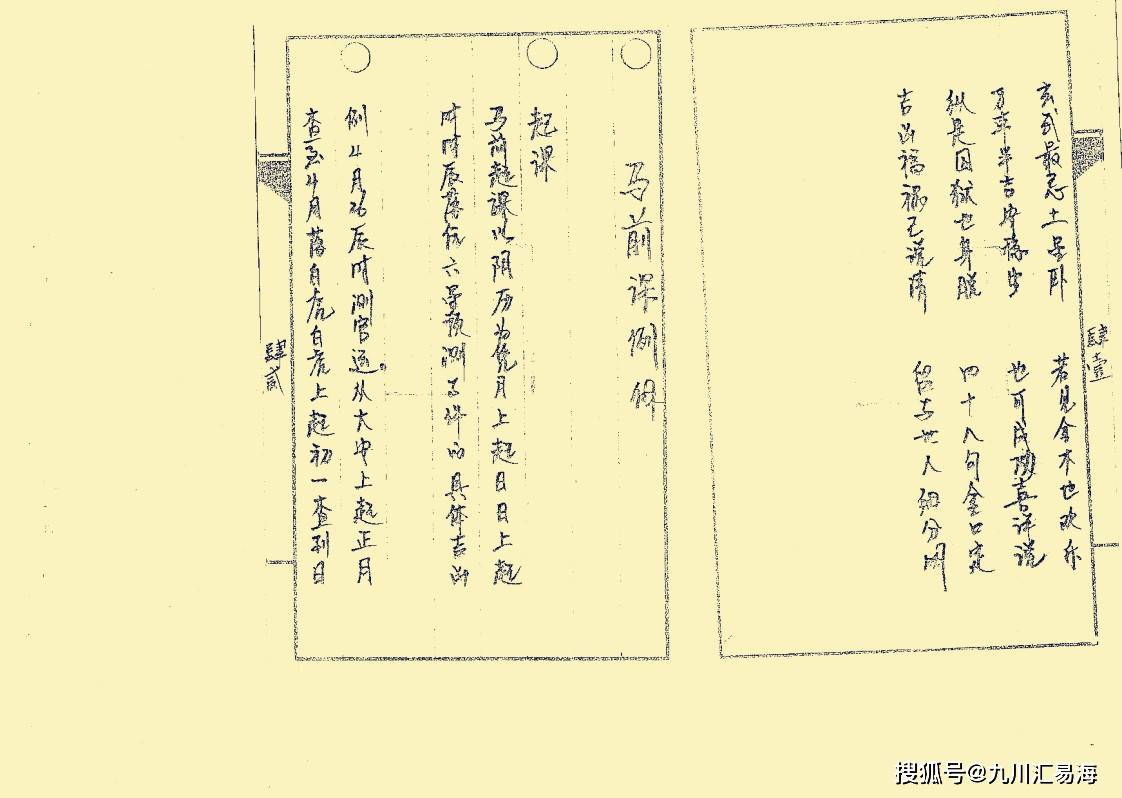 肆壹
玄武最忌土星卧 若见金木也欢乐
万事半吉安稳 也可成 喜详说
纵是囚狱也身脱 四十八句金口定
吉凶福禄已说清 留与世人细分明
马前课例
起课
马前起课以阴历为凭月上起日日上起
时时辰落 六星预测事件的具体吉凶
例4月26辰时测官运。从大安上起正月
查至4月落白虎白虎上起初一查到日
肆贰
搜狐号@九川汇易海